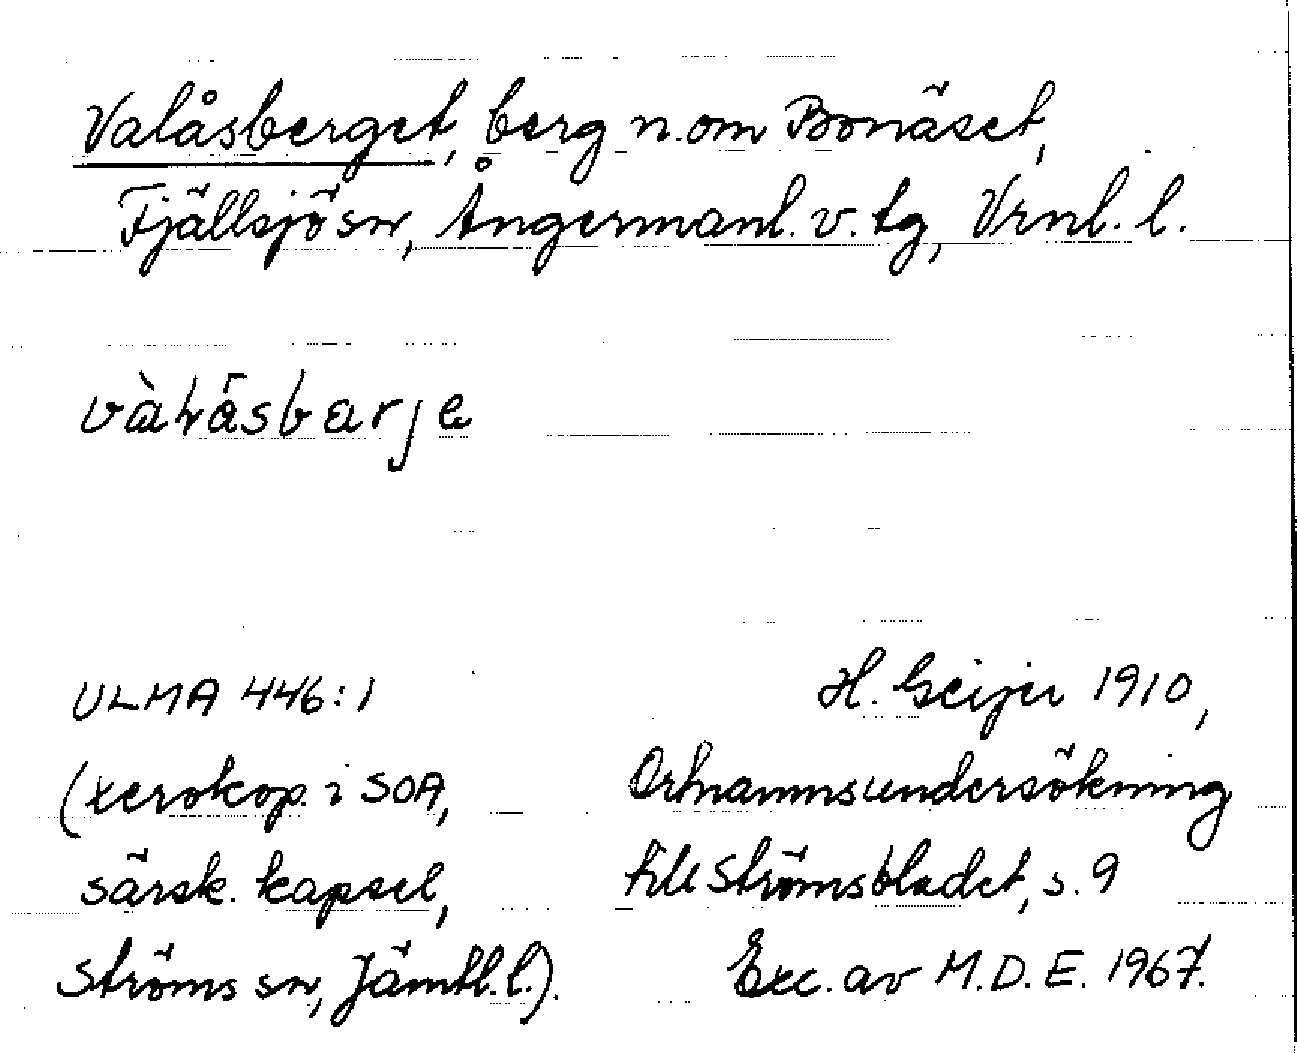 Valåsberget, berg n. om Bonäset,
Fjällsjö sn, Ångermanl. v. tg, Vrnl. l.
vàɫåsbarje
ULMA 446:1
(xerokop. i SOA,
särsk. kapsel,
Ströms sn, Jämtl. l.).
H. Geijer 1910,
Ortnamnsundersökning
till Strömsbladet, s. 9
Exc. av M.D.E. 1967.